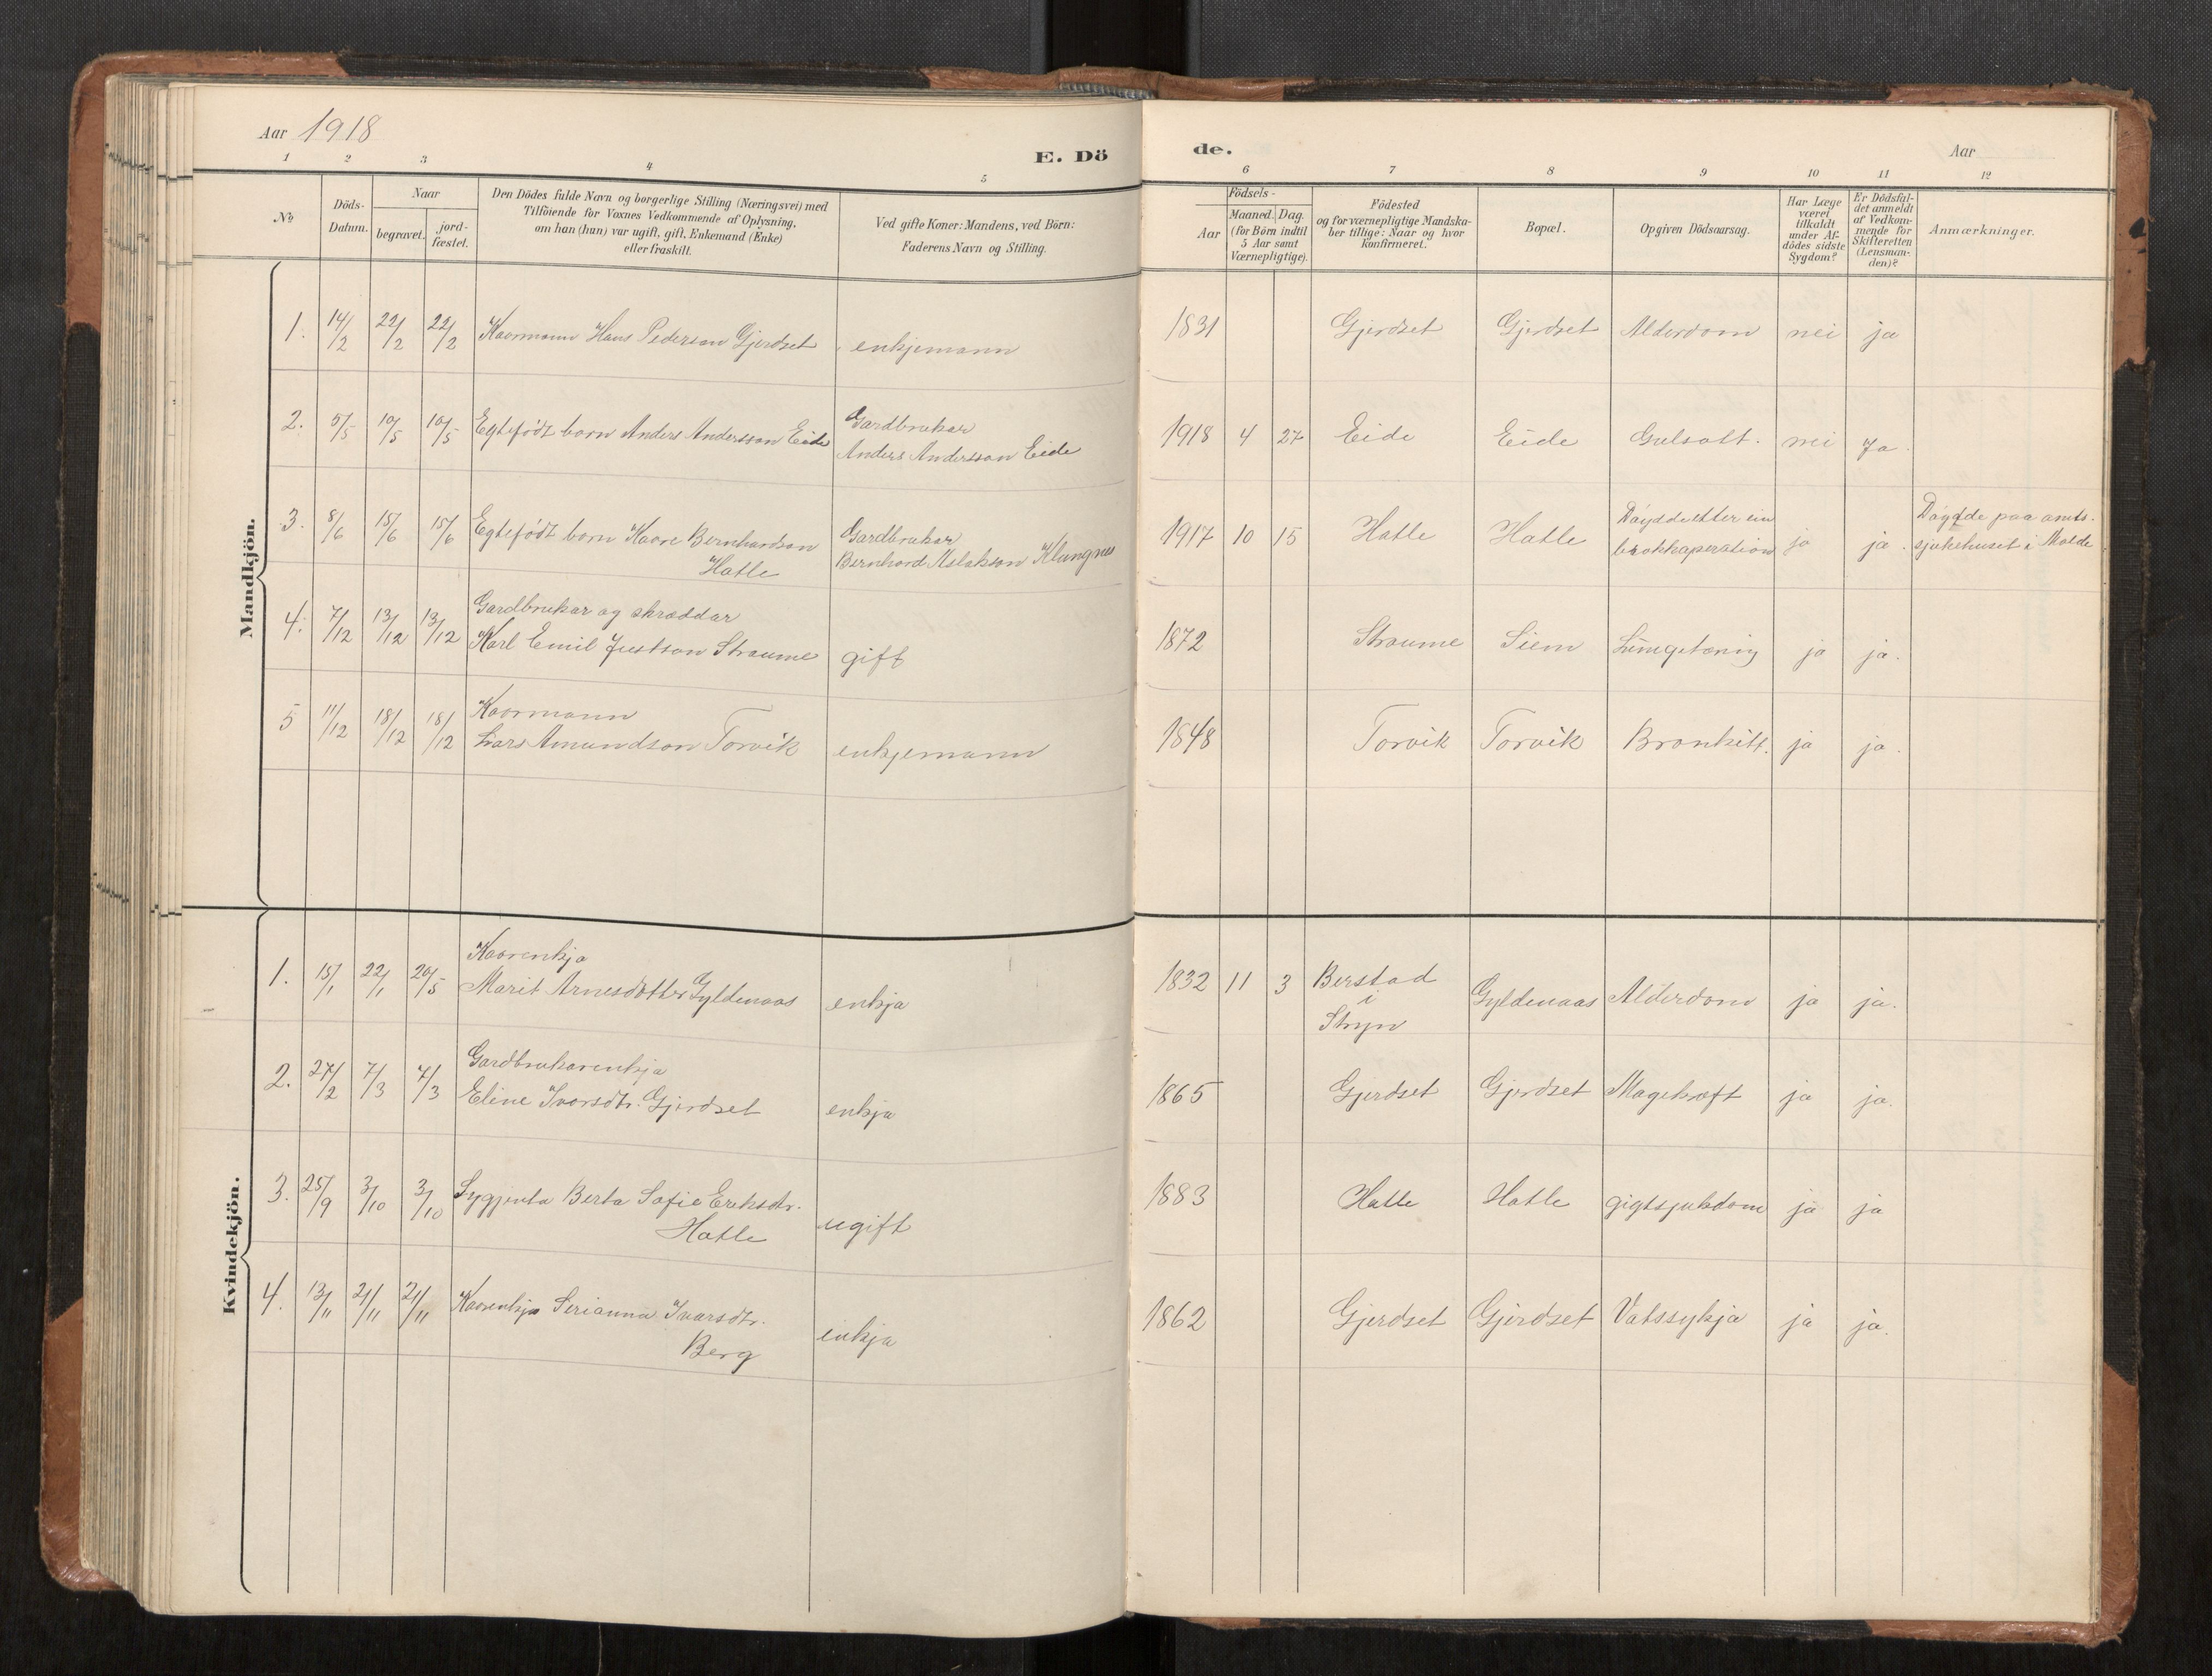 Aar 1918
E. Dö
de.
Aar
1 2 3 4 5
6 7 8 9 10 11 12
No
Döds-
Datum.
Naar
begravet.
jord-
fæstet.
Den Dödes fulde Navn og borgerlige Stilling (Næringsvei) med
Tilföiende for Voxnes Vedkommende af Oplysning,
om han (hun) var ugift, gift, Enkemand (Enke)
eller fraskilt.
Ved gifte Koner: Mandens, ved Börn:
Faderens Navn og Stilling.
Födsels-
Aar
Maaned. Dag.
(for Börn indtil
5 Aar samt
Værnepligtige).
Födested
og for værnepligtige Mandska-
ber tillige: Naar og hvor
konfirmeret.
Bopæl.
Opgiven Dödsaarsag.
Har Læge
været
tilkaldt
under Af-
dödes sidste
Sygdom?
Er Dödsfal-
det anmeldt
af Vedkom-
mende for
Skifteretten
(Lensman-
den)?
Anmærkninger.
Mandkjön.
1. 14/2 22/2 22/2 Kaarmann Hans Pederson Gjerdset enkjemann 1831 Gjerdset Gjerdset Alderdom nei ja
2. 5/5 10/5 10/5 Egtefödt barn Anders Andersson Eide
Gardbrukar
Anders Andersson Eide
1918 4 27 Eide Eide Gulsott. nei Ja.
3. 8/6 15/6 15/6 Egtefödt barn Kaare Bernhardson
Hatle
Gardbrukar
Bernhard Aslakson Klungnes
1917 10 15 Hatle Hatle
Döydde etter ein
brokkoperation
ja ja.
Döydde paa amts-
sjukehuset i Molde
4. 7/12 13/12 13/12
Gardbrukar og skræddar
Karl Emil Justson Straume
gift
1872 Straume Siem Lungetæring ja ja.
5 11/12 18/12 18/12
Kaarmann
Lars Amundson Torvik
enkjemann
1848 Torvik Torvik Bronkitt. ja ja.
Kvindekjön.
1. 15/1 22/1 20/5
Kaarenkja
Marit Arnesdotter Gyldenaas
enkja
1832 11 3
Berstad
i
Stryn
Gyldenaas Alderdom ja ja.
2. 27/2 7/3 7/3
Gardbrukarenkja
Eline Ivarsdtr. Gjerdset
enkja
1865 Gjerdset Gjerdset Magekræft ja ja.
3. 25/9 3/10 3/10 Sygjenta Berta Sofie Eriksdtr.
Hatle
ugift
1883 Hatle Hatle gigtsjukdom ja ja
4. 13/11 21/11 21/11 Kaarenkja Serianna Ivarsdtr.
Berg
enkja
1862 Gjerdset Gjerdset Vatssykja ja ja.